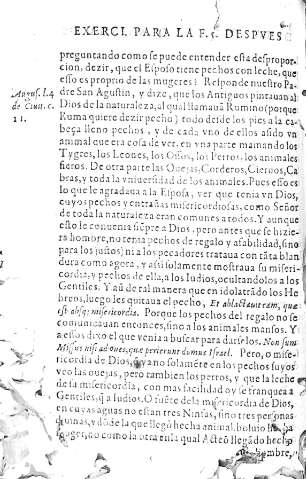 EXERCI. PARA LA F. DESPVES
preguntando como se puede entender esta despropor-
cion, dezir, que el Esposo tiene pechos con leche, que
esso es proprio de las mugeres? Responde nuestro Pa-
August. l. 4
dre San Agustin, y dize, que los Antiguos pintauan al
de Ciuit. c.
Dios de la naturaleza, al qual llamauã Rumino (porque
11.
Ruma quiere dezir pecho) todo desde los pies a la ca-
beça lleno pechos, y de cada vno de ellos asido vn
animal que era cosa de ver, en vna parte mamando los
Tygres, los Leones, los Ossos, los Perros, los animales
fieros. De otra parte las Ouejas, Corderos, Cieruos, Ca-
bras, y toda la vniuersidad de los animales. Pues esso es
lo que le agradaua a la Esposa, ver que tenia vn Dios,
cuyos pechos y entrañas misericordiosas, como Señor
de toda la naturaleza eran comunes a todos. Y aunque
esto le conuenia siẽpre a Dios, pero antes que se hizie-
ra hombre, no tenia pechos de regalo y afabilidad, (sino
para los justos) ni a los pecadores trataua con tãta blan
dura como agora, y assi solamente mostraua su miseri-
cordia, y pechos de ella, a los Iudios, ocultandolos a los
Gentiles. Y aũ de tal manera que en idolatrãdo los He-
breos, luego les quitaua el pecho, Et ablactaueram, que
est absq; misericordia. Porque los pechos del regalo no se
comunicauan entonces, sino a los animales mansos. Y a
essos dixo el que venia a buscar para darselos. Non sum
Missus nisi ad oues, que perierunt domus Israel. Pero, o mise-
ricordia de Dios, ya no solamẽte en los pechos suyos
veo las ouejas, pero tambien los perros, y que la leche
de su misericordia, con mas facilidad oy se franquea a
Gentiles, q̃ a Iudios. O fuẽte de la misericordia de Dios,
en cuyas aguas no estan tres Ninfas, sino tres personas
diuinas, y dõde la que llegó hecha animal, boluio he
no como la otra en la qual Acteõ llegado hecho
hombre,